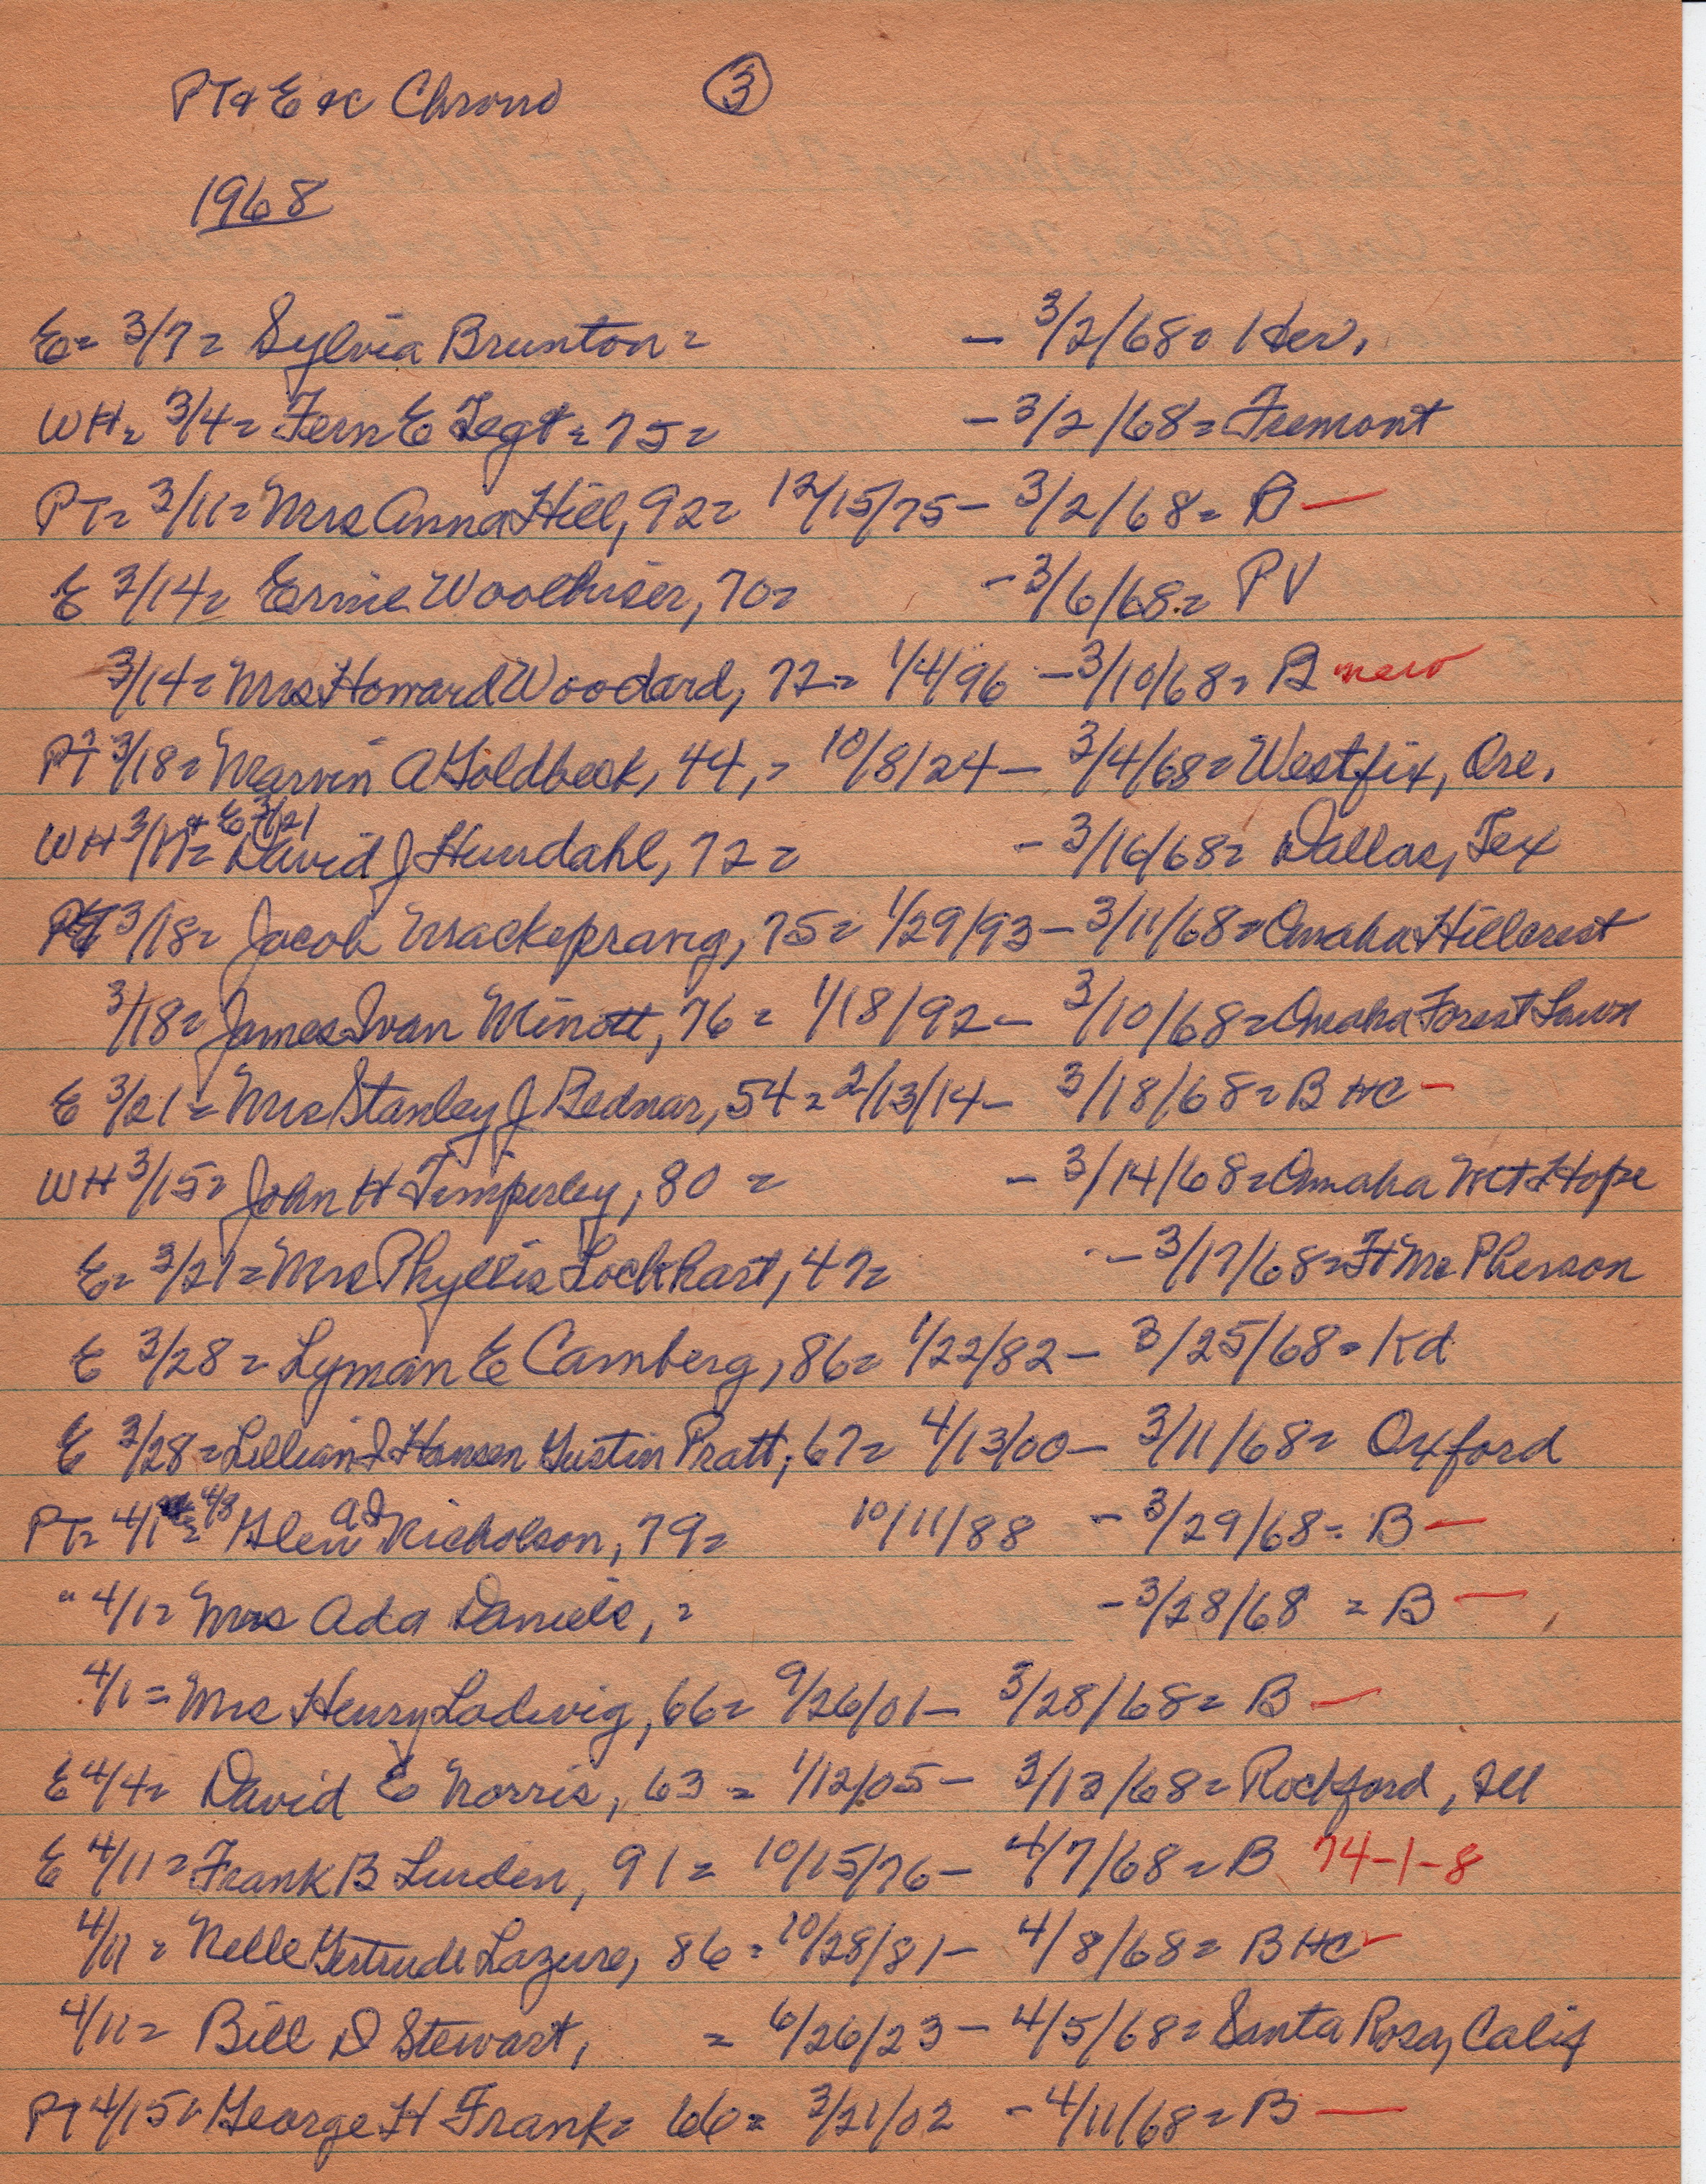 PT & E etc Chrono ③
1968
E= 3/7= Sylvia Brunton= - 3/2/68= Her.
WH= 3/4= Fern E Tegt= 75= - 3/2/68= Fremont
PT= 3/11= Mrs Anna Hill, 92= 12/15/75 - 3/2/68= B —
E 3/14= Ernie Woolhiser, 70= - 3/6/68= PV
3/14= Mrs Howard Woodard, 72= 1/4/96 - 3/10/68= B new
PT 3/18= Marvin A Goldbeck, 44,= 10/8/24 - 3/4/68= Westfir, Ore.
WH 3/19= + E 3/21 David J Hundahl, 72= - 3/16/68= Dallas, Tex
PT 3/18= Jacob Mackeprang, 75= 1/29/93 - 3/11/68= Omaha Hillcrest
3/18= James Ivan Minott, 76= 1/18/92 - 3/10/68= Omaha Forest Lawn
E 3/21= Mrs Stanley J Bednar, 54= 2/13/14 - 3/18/68= B HC -
WH 3/15= John H Timperley, 80= - 3/14/68= Omaha Mt Hope
E= 3/21= Mrs Phyllis Lockhart, 47= - 3/17/68= Ft McPherson
E 3/28= Lyman E Camberg, 86= 1/22/82 - 3/25/68= Kd
E 3/28= Lillian I Hansen Gustin Pratt, 67= 4/13/00 - 3/11/68= Oxford
PT= 4/1 4/8 Glen Nicholson, 79= 10/11/88 - 3/29/68= B —
" 4/1= Mrs Ada Daniels, = - 3/28/68 = B —
4/1= Mrs Henry Ladwig, 66= 9/26/01 - 3/28/68= B —
E 4/4= David E Norris, 63= 1/12/05 - 3/13/68= Rockford, Ill
E 4/11= Frank B Linden, 91= 10/15/76 - 4/7/68= B 74-1-8
4/11= Nelle Gertrude Lazure, 86= 10/28/81 - 4/8/68= B HC -
4/11= Bill D Stewart, = 6/26/23 - 4/5/68= Santa Rosa, Calif
PT 4/15= George H Frank= 66= 3/21/02 - 4/11/68= B —